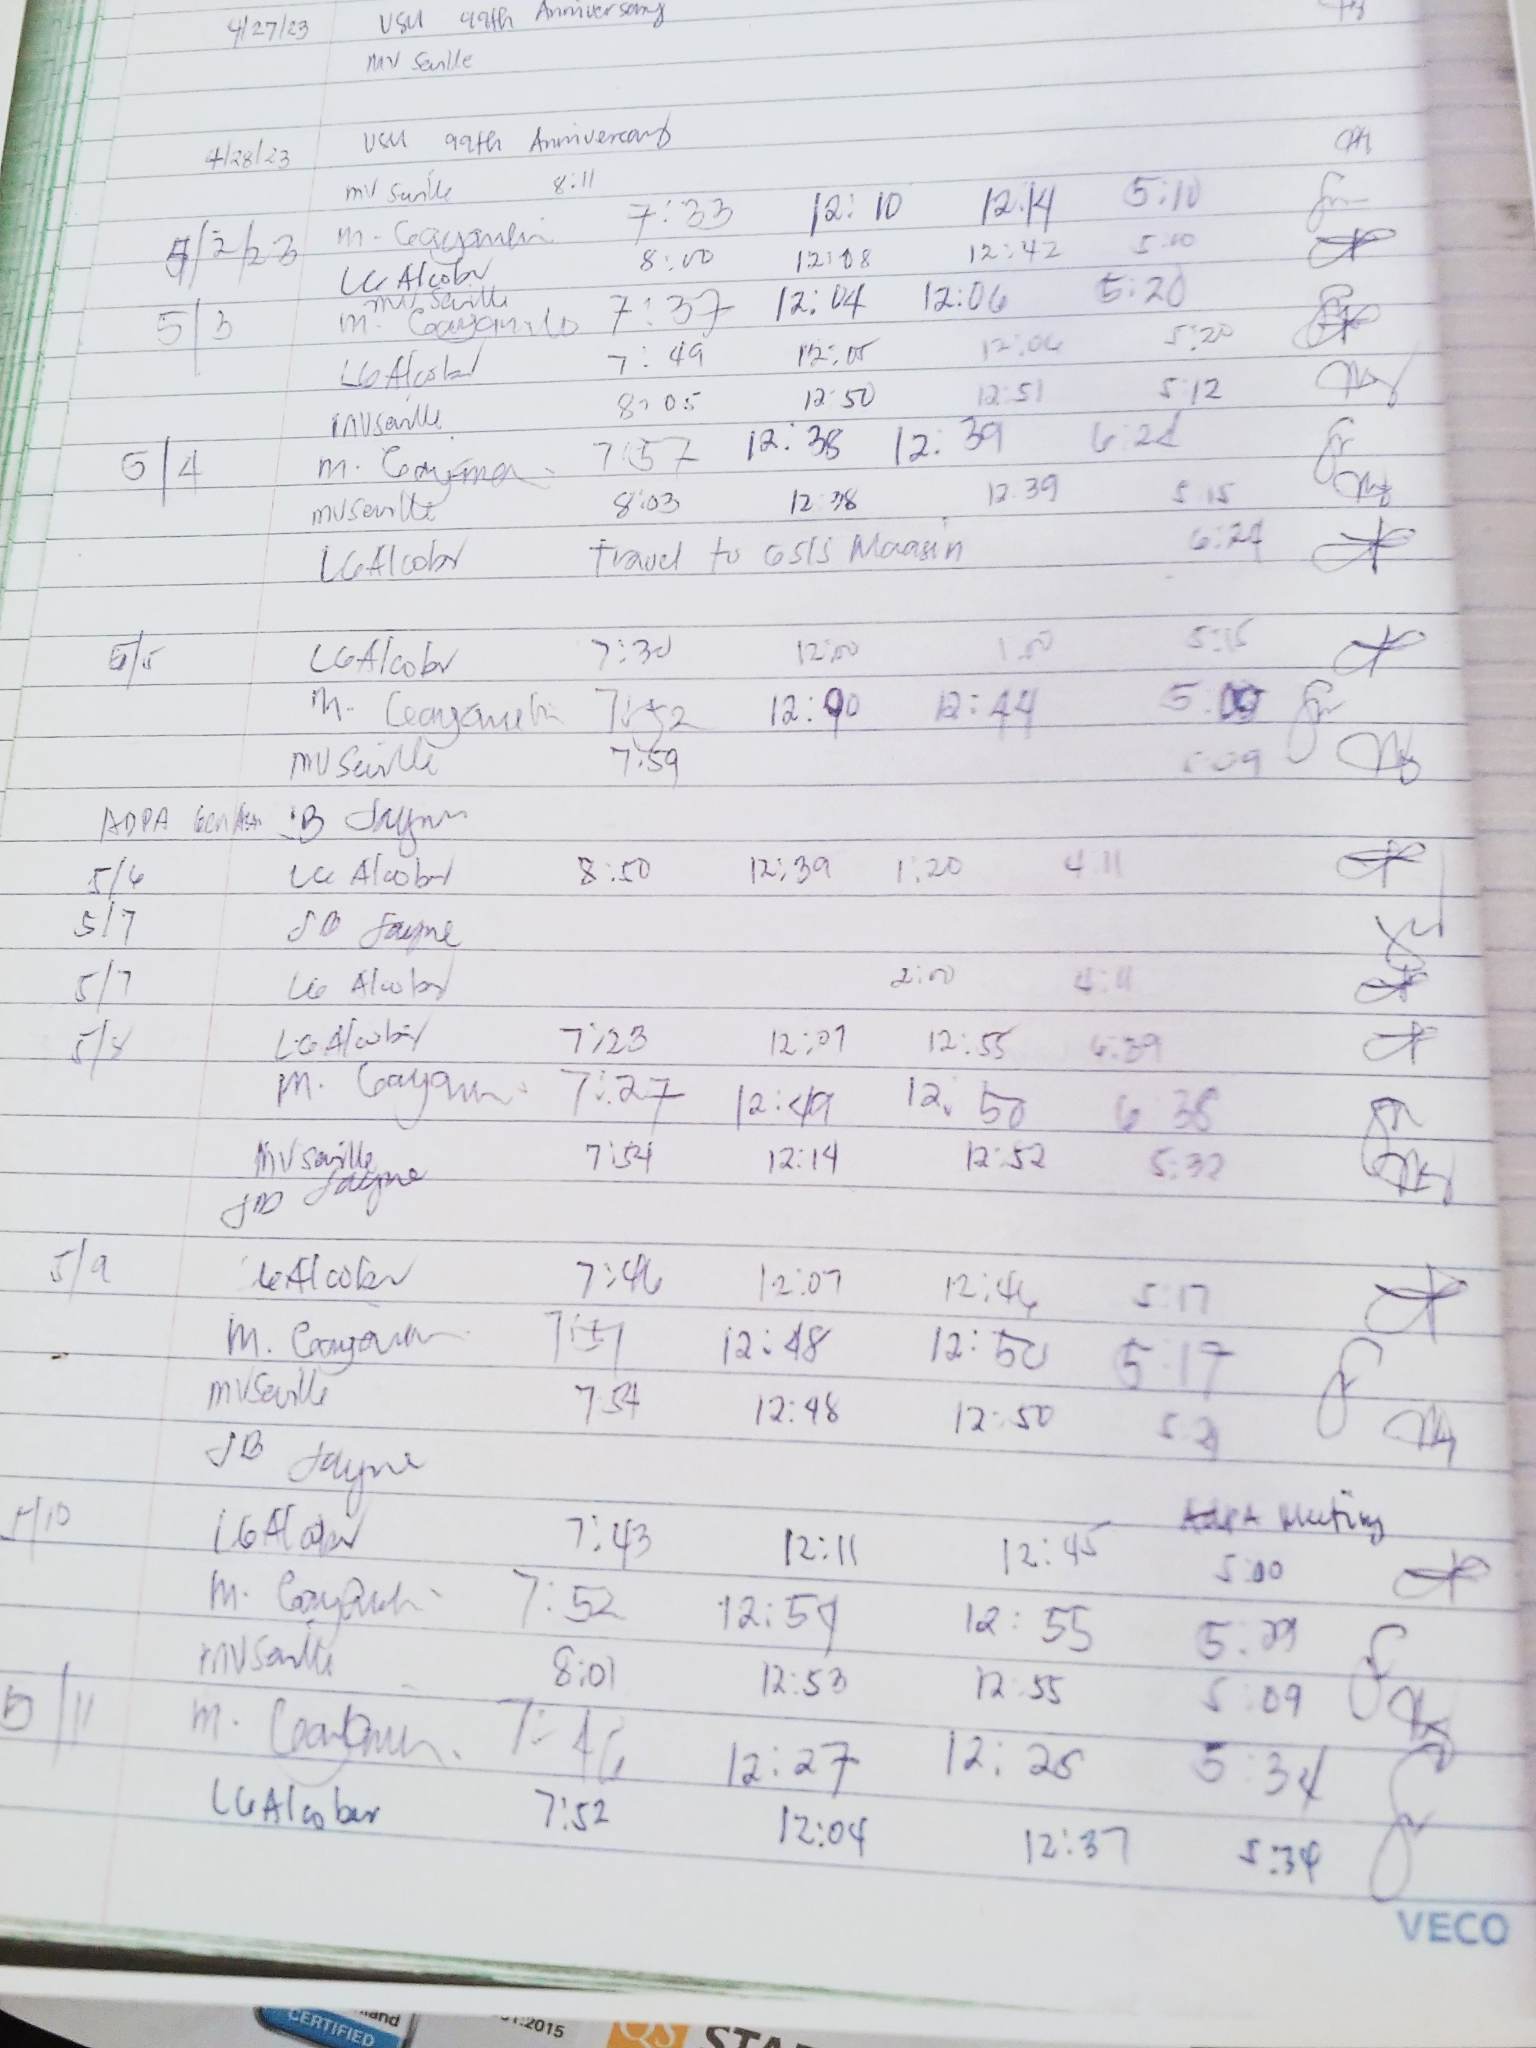 4/27/23 VSU 99th Anniversary
MV Seville
4/28/23 VSU 99th Anniversary
MV Seville 8:11
5/2/23 M. 7:33 12:10 12:14 5:10
LG Alcober 8:00 12:08 12:42 5:00
MV Seville
5/3 M. 7:37 12:04 12:06 5:20
LG Alcober 7:49 12:05 12:06 5:20
MV Seville 8:05 12:50 12:51 5:12
5/4 M. 7:57 12:38 12:39 6:24
MV Seville 8:03 12:38 12:39 5:15
LG Alcober Travel to GSIS Maasin 6:24
5/5 LG Alcober 7:30 12:00 1:00 5:15
M. 7:52 12:40 12:44
MV Seville 7:59 5:09
ADPA JB Jayme
5/6 LG Alcober 8:50 12:39 1:20 4:11
5/7 JB Jayme
5/7 LG Alcober 2:00 4:11
5/8 LG Alcober 7:23 12:07 12:55 6:39
M. 7:27 12:49 12:50 6:38
MV Seville 7:54 12:14 12:52 5:32
JB Jayme
5/9 LG Alcober 7:46 12:07 12:46 5:17
M. 12:48 12:50 5:17
MV Seville 7:54 12:48 12:50
JB Jayme
ADPA Meeting
5/10 LG Alcober 7:43 12:11 12:45 5:00
M. 7:52 12:54 12:55
MV Seville 8:01 12:53 12:55 5:09
5/11 M. 7:46 12:27 12:28 5:34
LG Alcober 7:52 12:04 12:37 5:34
VECO
CERTIFIED
:2015
QS STA